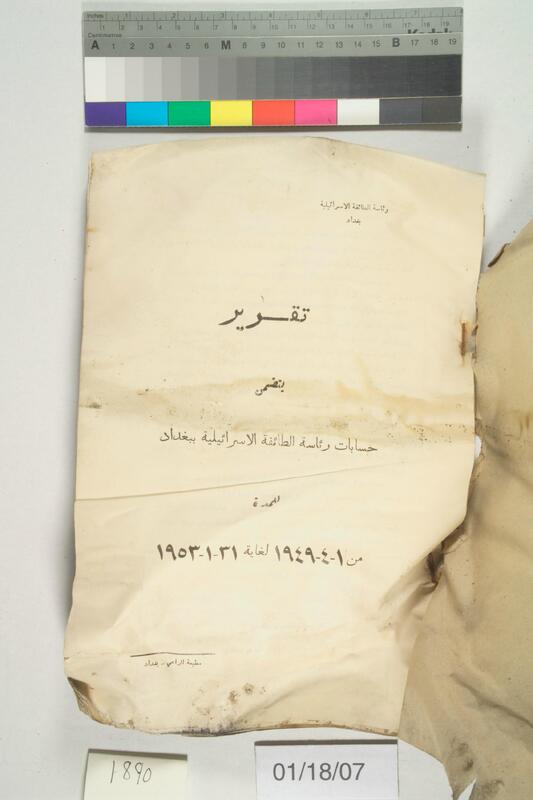 Inches 1 2 3 4 5 6 7 8
Centimetres
A 1 2 3 4 5 6 M 8 9 10 11 12 13 14 15 B 17 18 19
رئاسة الطائفة الاسرائيلية
بغداد
تقرير
يتضمن
حسابات رئاسة الطائفة الاسرائيلية ببغداد
للمدة
من ١-٤-١٩٤٩ لغاية ٣١-١-١٩٥٣
مطبعة الرامي - بغداد
1890
01/18/07